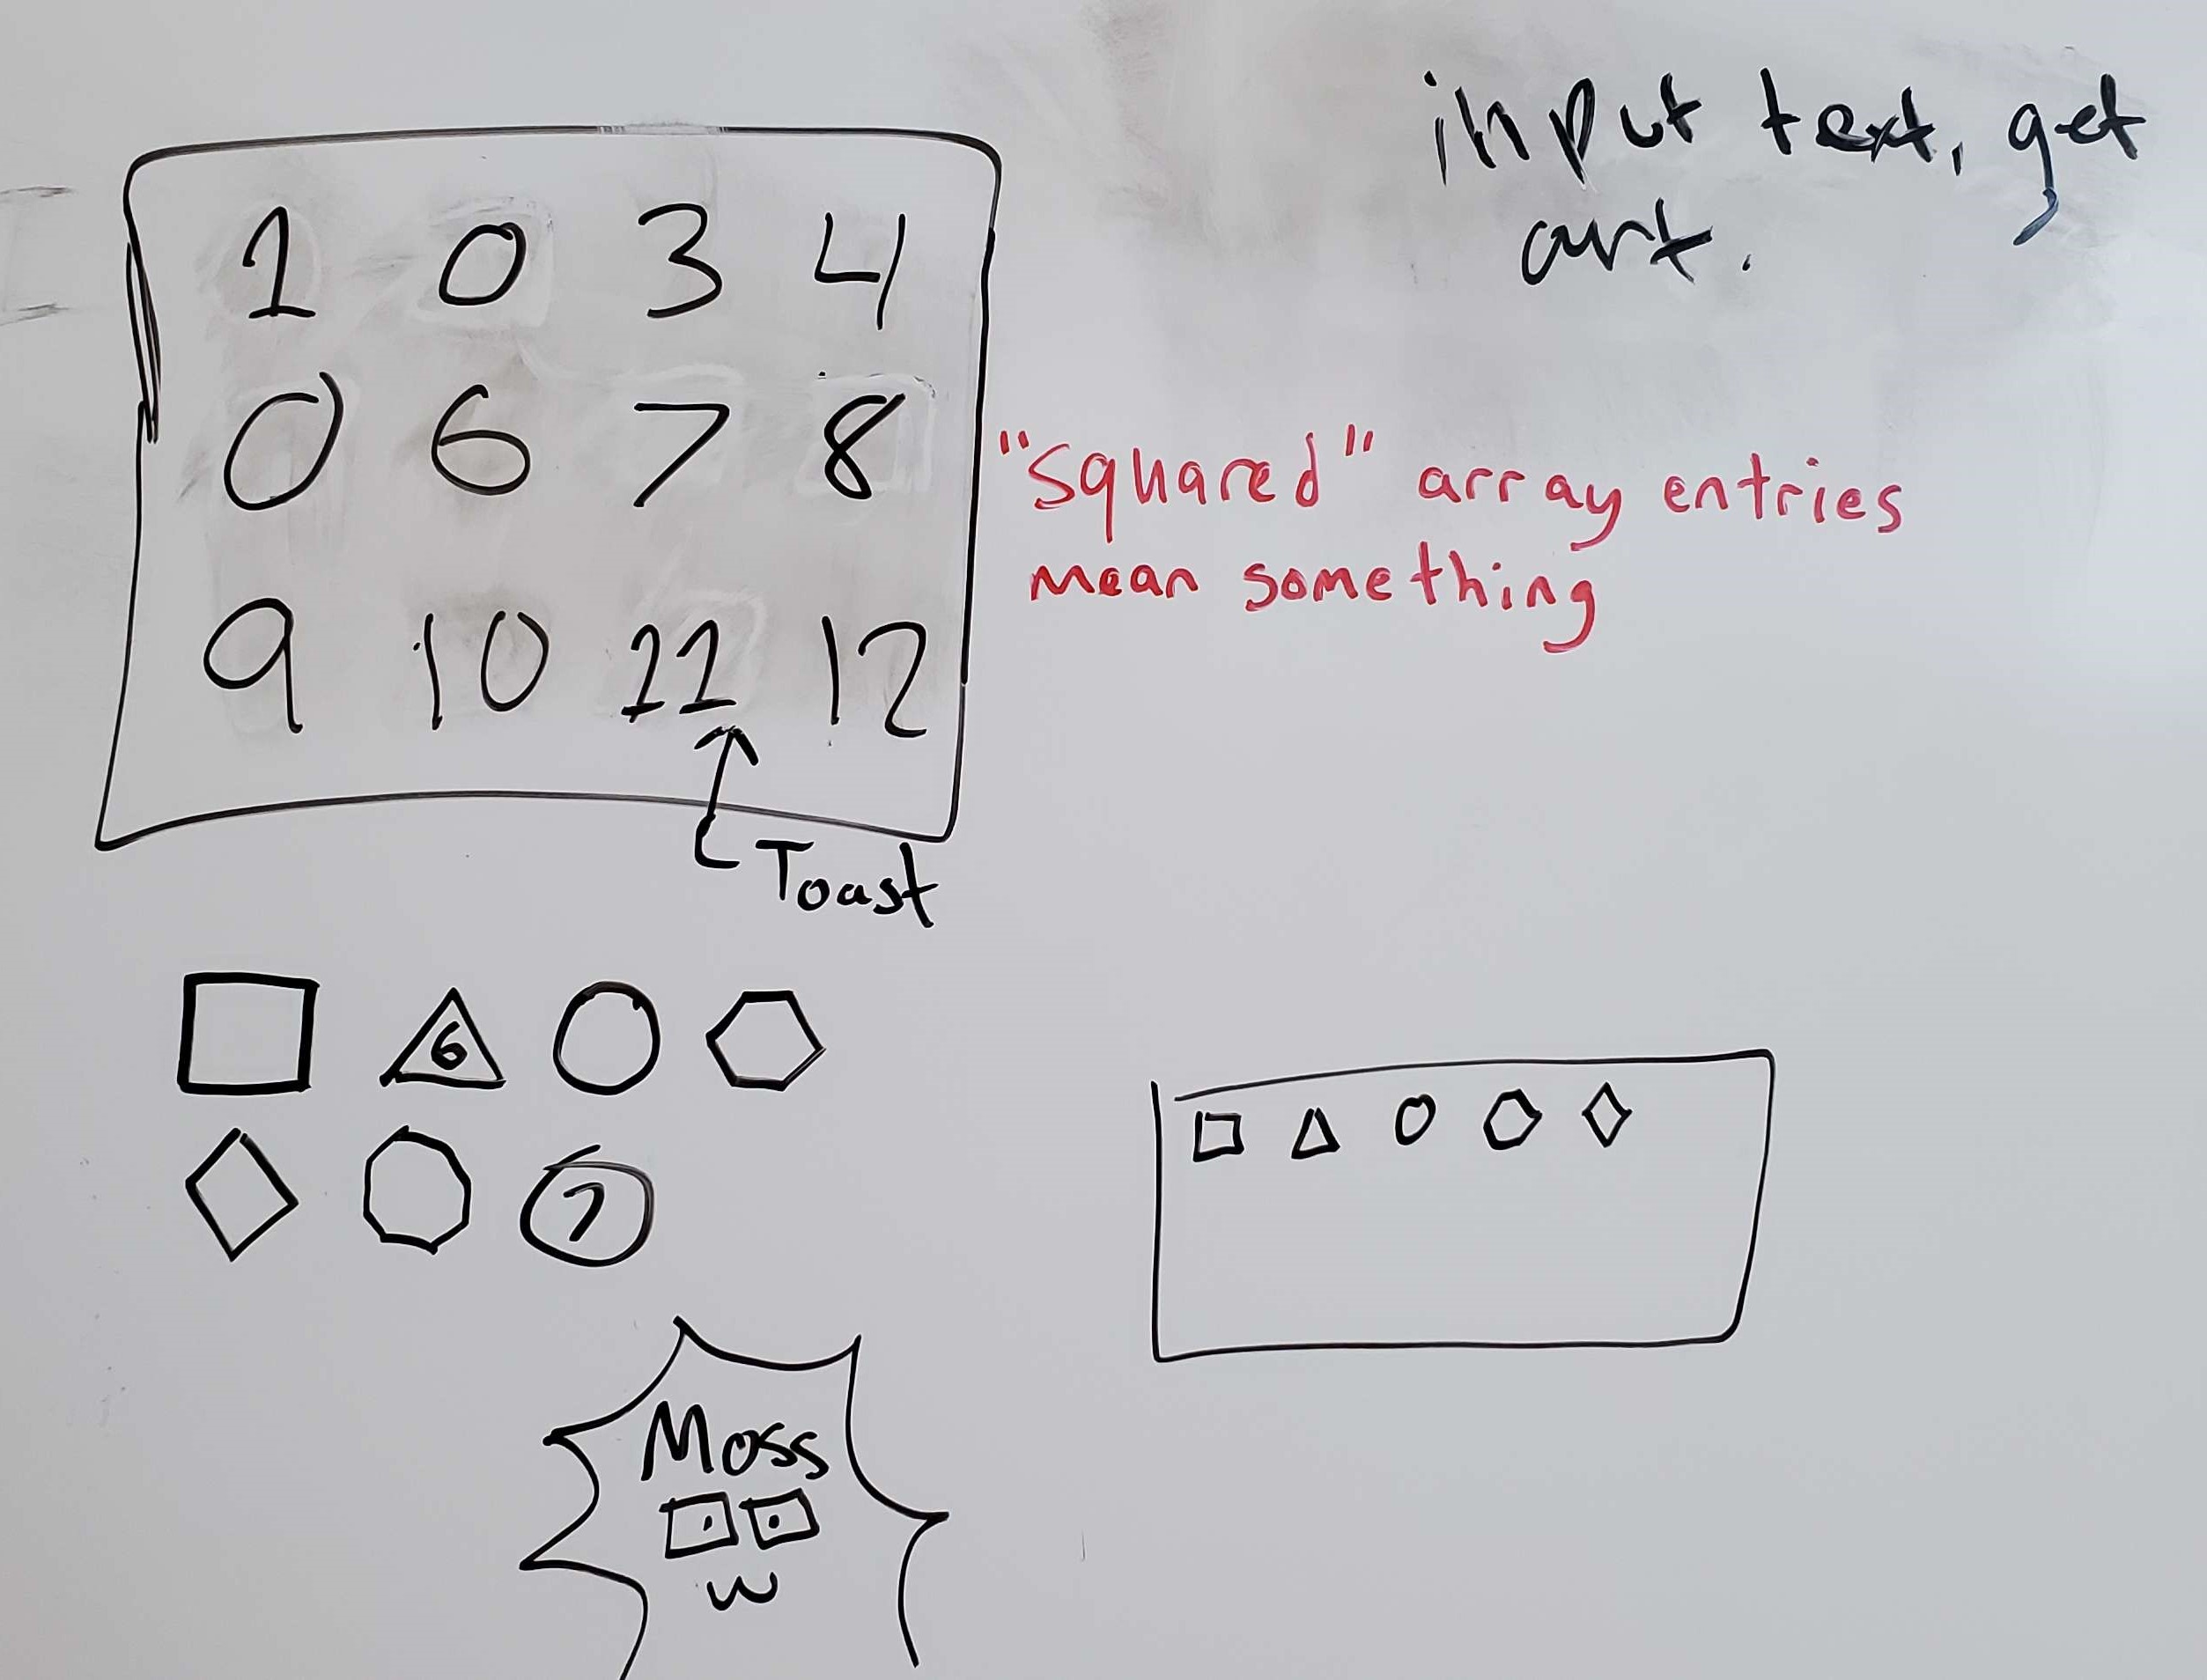 input text, get
art.
1 0 3 4
0 6 7 8
9 10 11 12
"squared" array entries
mean something
Toast
6
7
Moss
w